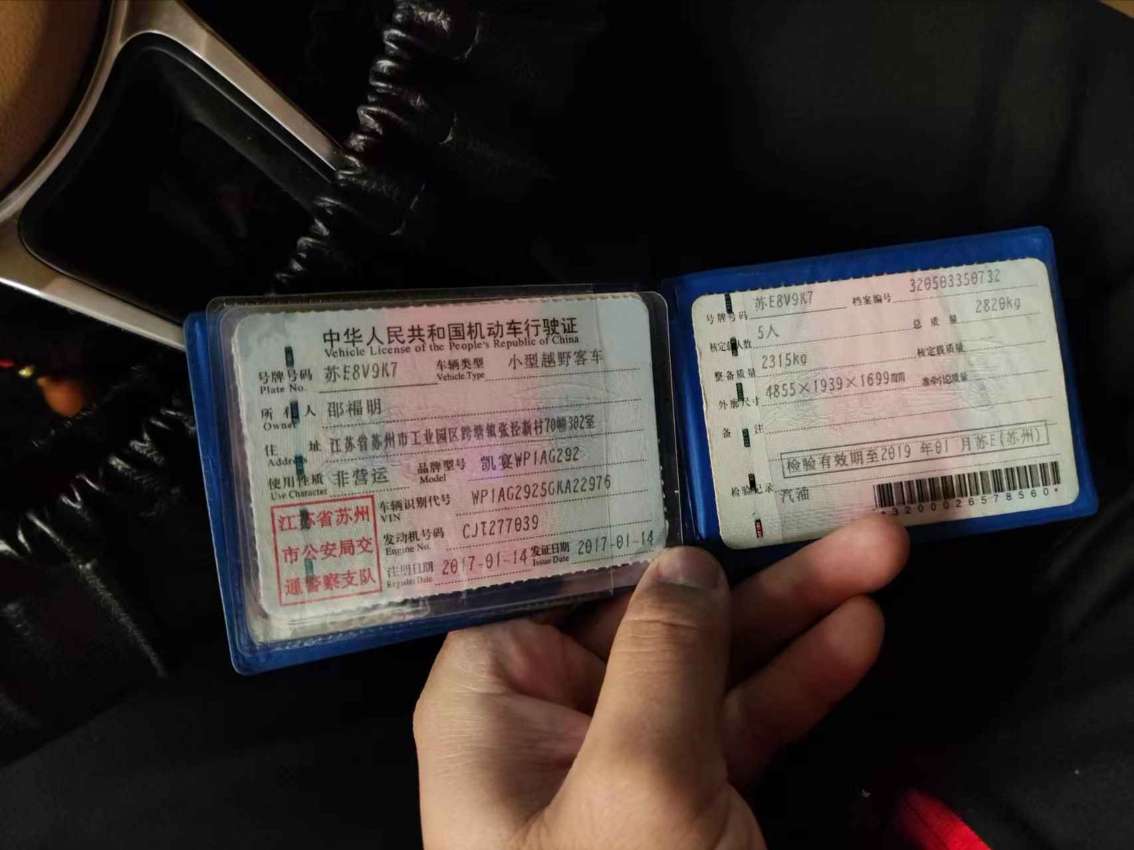 中华人民共和国机动车行驶证
Vehicle License of the People's Republic of China
号牌号码 苏E8V9K7 车辆类型 小型越野客车
Plate No. Vehicle Type
所有人 邵福明
Owner
住址 江苏省苏州市工业园区跨塘镇张泾新村70幢302室
Address
使用性质 非营运 品牌型号 凯宴WP1AG292
Use Character Model
江苏省苏州
市公安局交
通警察支队
车辆识别代号 WP1AG2925GKA22976
VIN
发动机号码 CJT277039
Engine No.
注册日期 2017-01-14 发证日期 2017-01-14
Register Date Issue Date
号牌号码 苏E8V9K7 档案编号 320503350732
核定载人数 5人 总质量 2820kg
整备质量 2315kg 核定载质量
外廓尺寸 4855×1939×1699mm 准牵引总质量
备注
检验有效期至2019年01月苏E(苏州)
检验记录 汽油
*3200026578560*